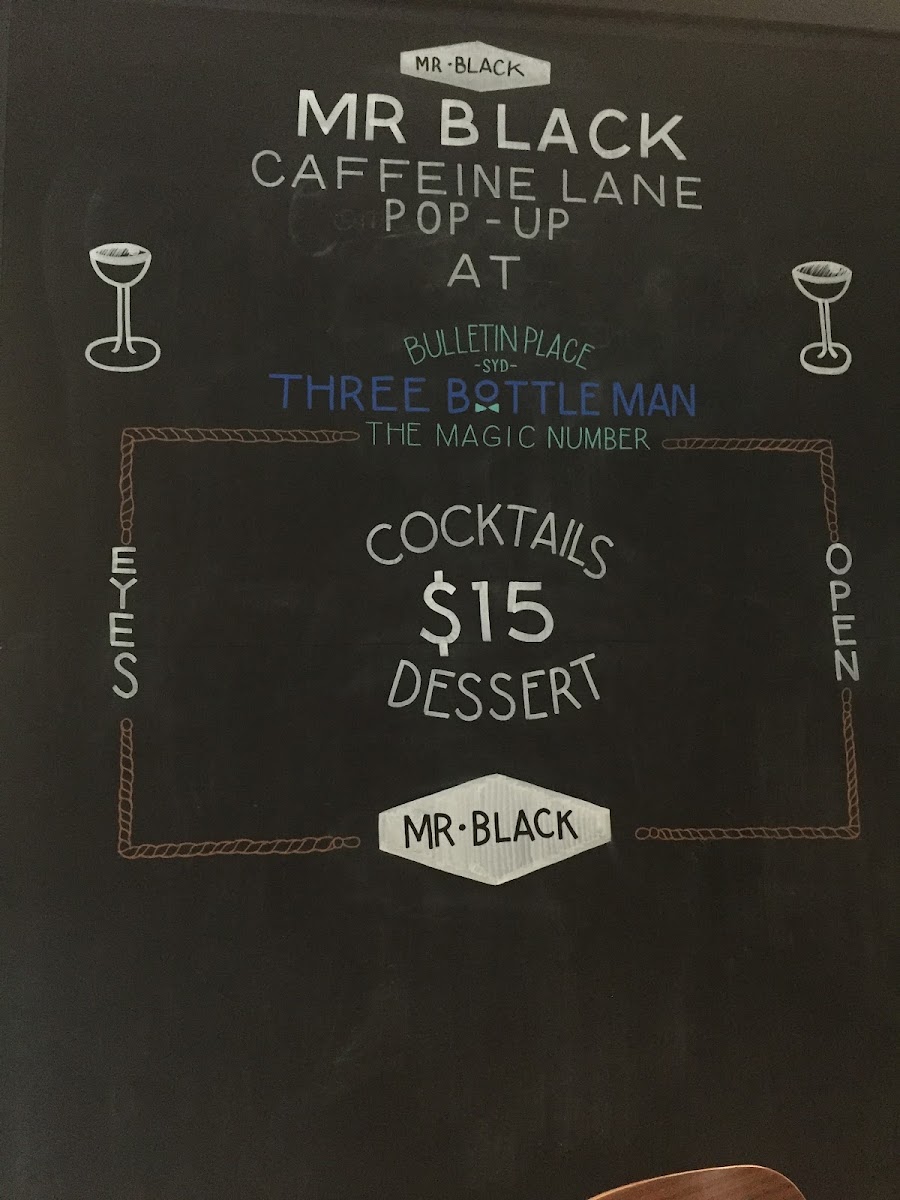 MR·BLACK
MR BLACK
CAFFEINE LANE
POP-UP
AT
BULLETIN PLACE
-SYD-
THREE BOTTLE MAN
THE MAGIC NUMBER
EYES
COCKTAILS
$15
DESSERT
OPEN
MR·BLACK